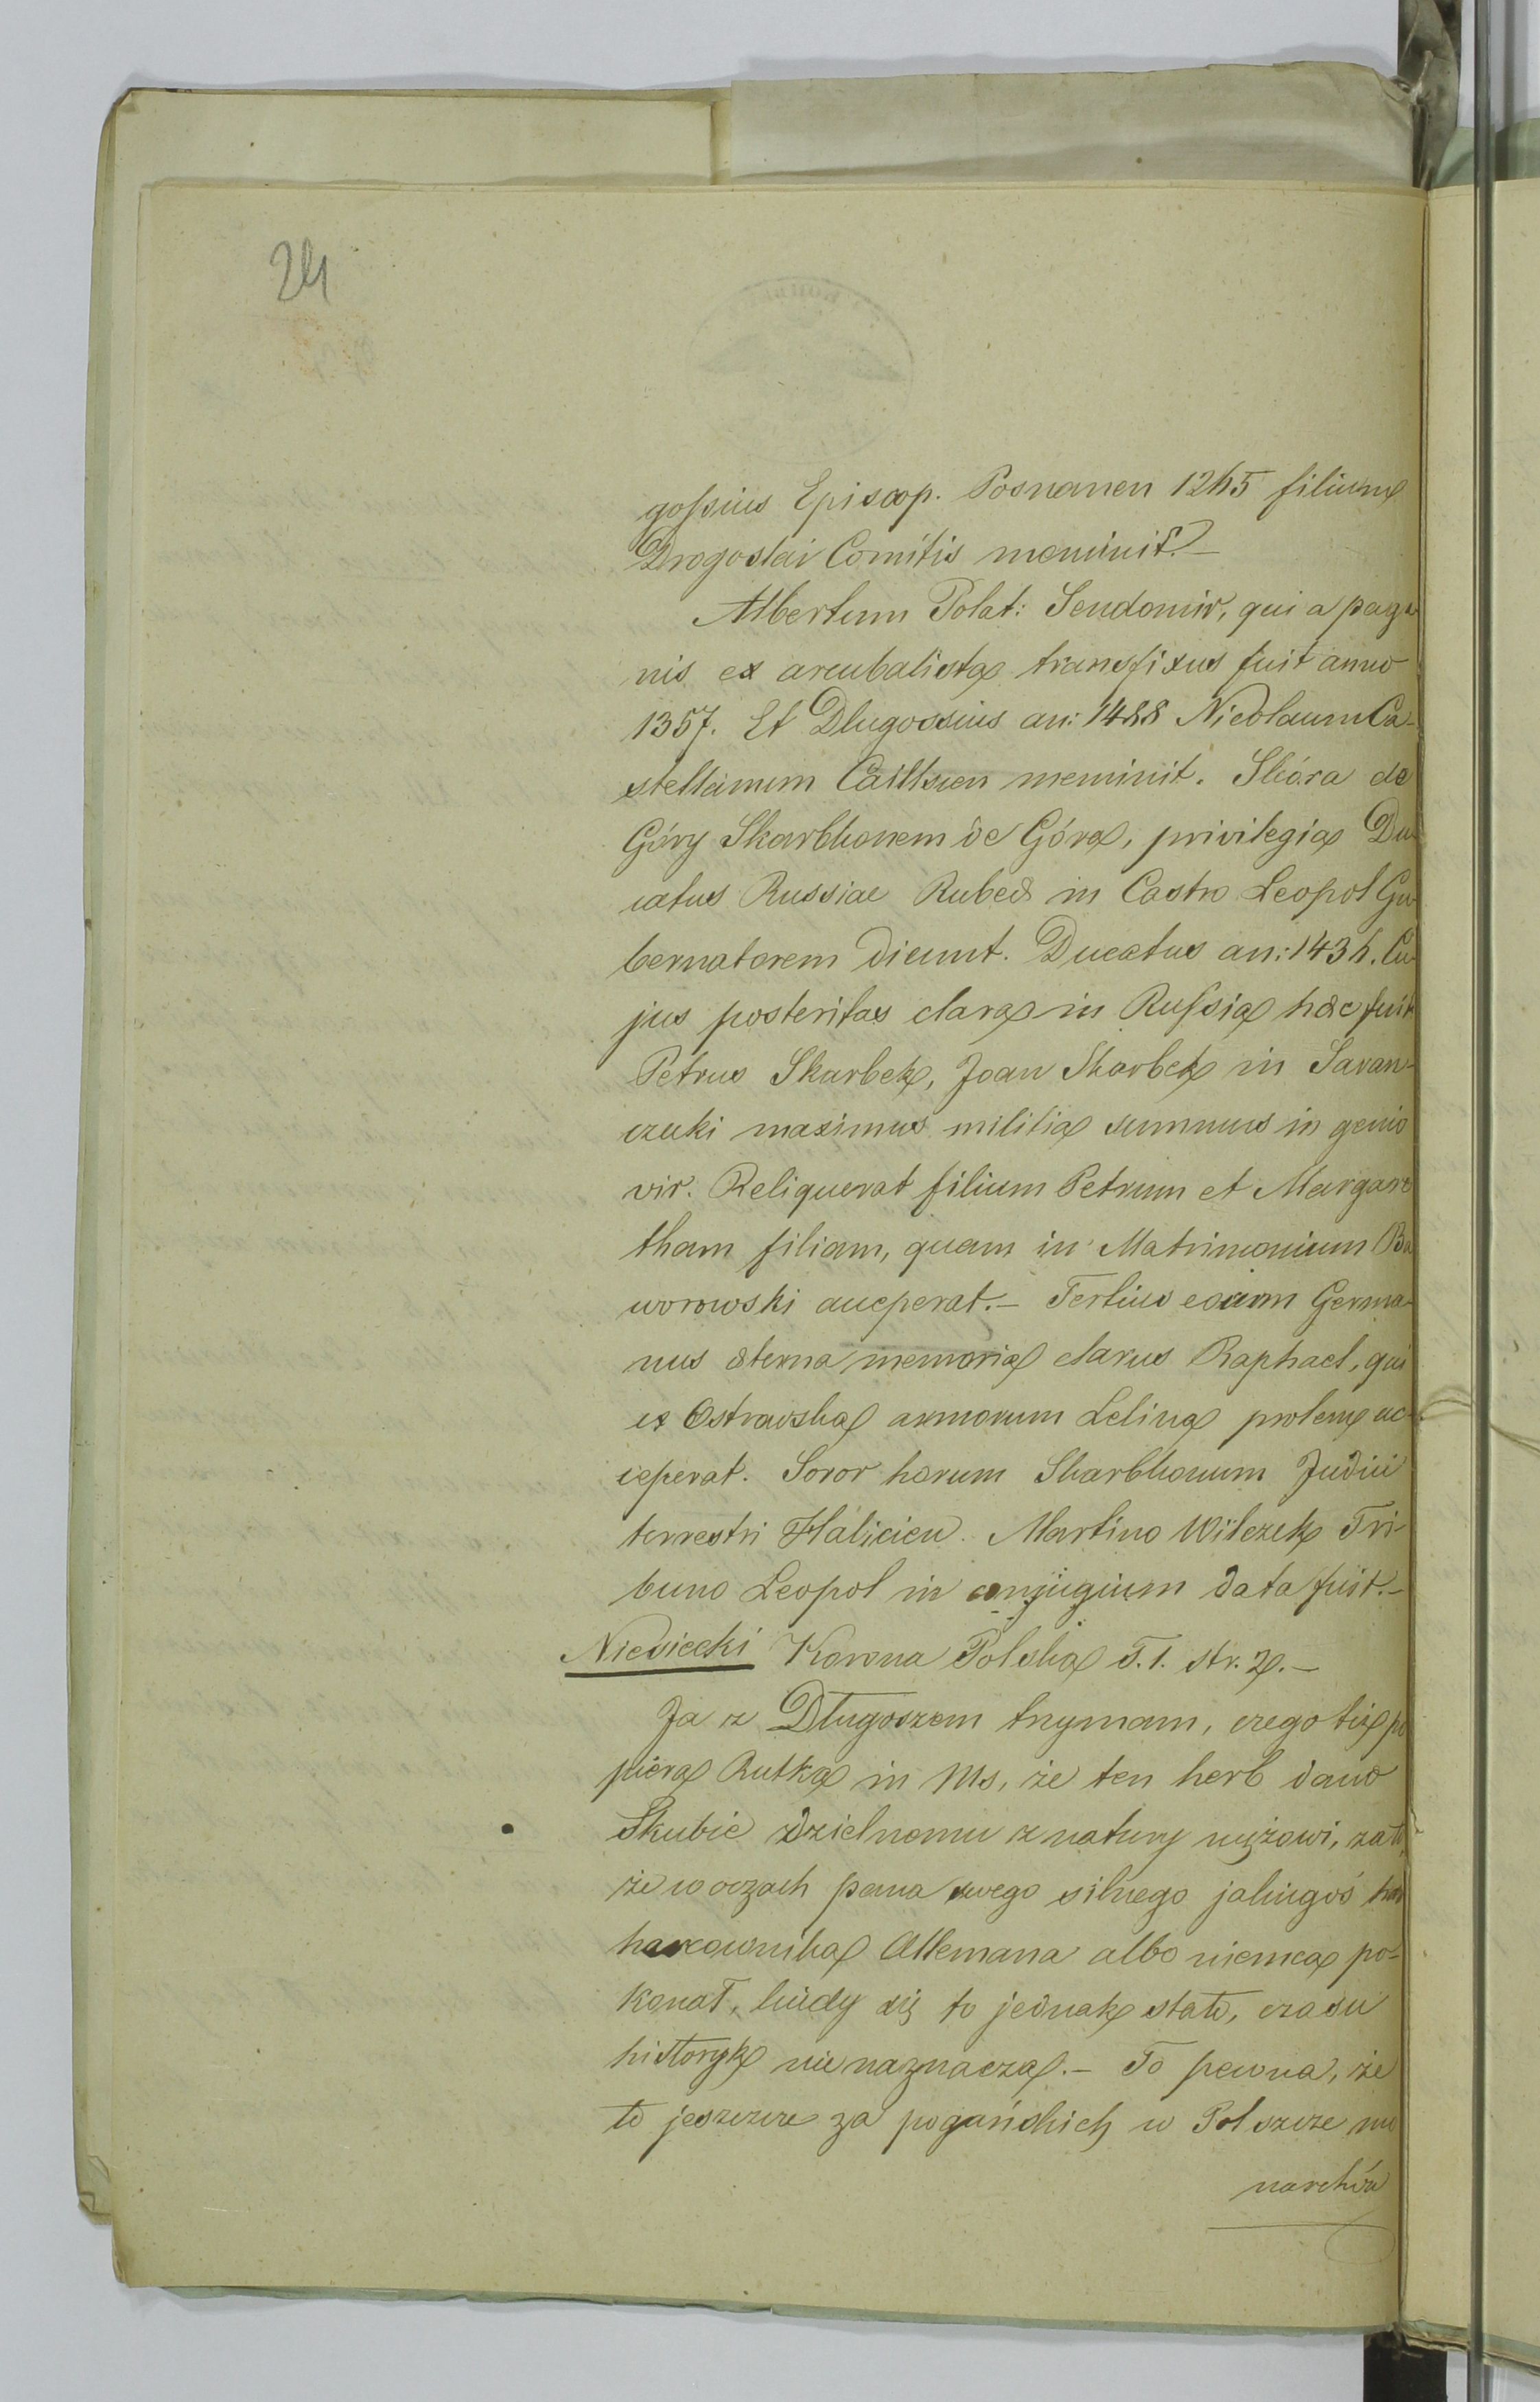 24
goſsius Episcop. Posnanen 1245 filium
Drogoslai Comitis meminit.–
Albertum Polat: Sendomir, qui a paga
nis ex arcubalista transfixus fuit anno
1357. Et Dlugossius an: 1488 Nicolaum Ca-
stellanum meminit. Skóra de
Góry Skarbkonem de Góra, privilegia Du
catus Russiae Rubeæ in Castro Leopol Gu
bernatorem dicunt. Ducatus an: 1434. Cu
jus posteritas clara in Ruſsia hæc fuit
Petrus Skarbek, Joan Skarbek in Saran-
czuki maximus militia summus in genio
vir. Reliquerat filium Petrum et Margare
tham filiam, quam in Matrimonium Ba
worowski acceperat.– Tertius eoarm Germa-
nus æterna memoria clarus Raphael, qui
ex Ostrowska armorum Leliwa prolem ac-
ceperat. Soror horum Skarbkonum Judici
terrestri Halicien. Martino Wilczek Tri-
buno Leopol in conjugium data fuit.–
Niesiecki Korona Polska T. 1. str. 2.–
Ja z Długoszem trzymam, czego też po
piera Rutka in Ms, że ten herb dano
Skubie dzielnemu z natury mężowi, za to,
że w oczach pana swego silnego jakiegoś har
harcownika Allemana albo niemca po-
konał, kiedy się to jednak stało, czasu
historyk nie naznacza.– To pewna, że
to jeszcze za pogańskich w Polszcze mo
narchów